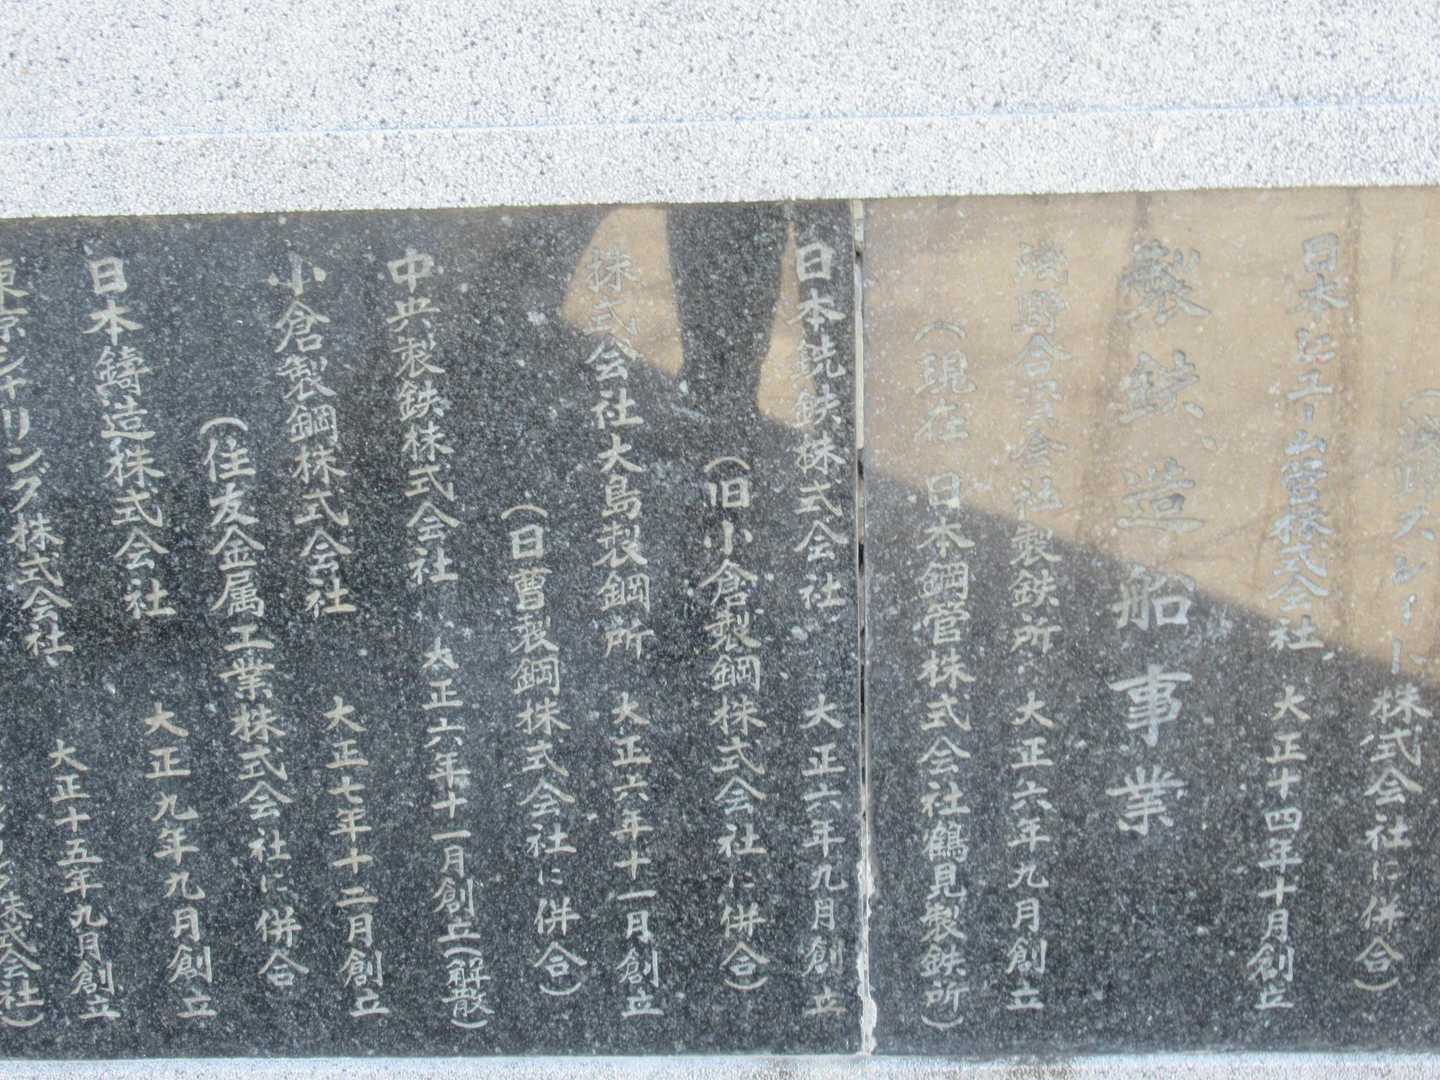 スレート株式会社に併合)
日本ヒューム管株式会社 大正十四年十月創立
製鉄、造船事業
浅野合資会社製鉄所 大正六年九月創立
(現在 日本鋼管株式会社鶴見製鉄所)
日本銑鉄株式会社 大正六年九月創立
(旧小倉製鋼株式会社に併合)
株式会社大島製鋼所 大正六年十一月創立
(日曹製鋼株式会社に併合)
中央製鉄株式会社 大正六年十一月創立(解散)
小倉製鋼株式会社 大正七年十二月創立
(住友金属工業株式会社に併合)
日本鋳造株式会社 大正九年九月創立
東京シャリング株式会社 大正十五年九月創立
株式会社)